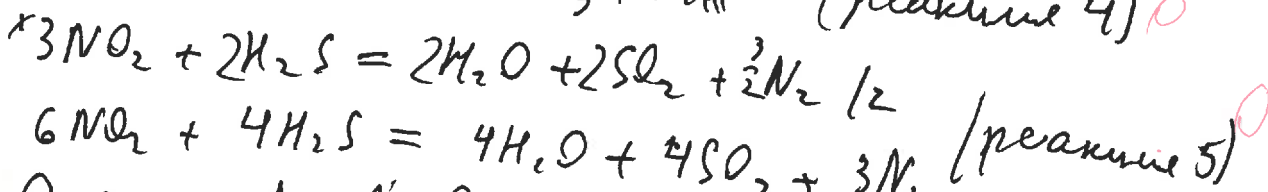 (реакция 4) 0
3NO₂ + 2H₂S = 2H₂O + 2SO₂ + 3/2 N₂ /2
6NO₂ + 4H₂S = 4H₂O + 4SO₂ + 3N₂ (реакция 5) 0